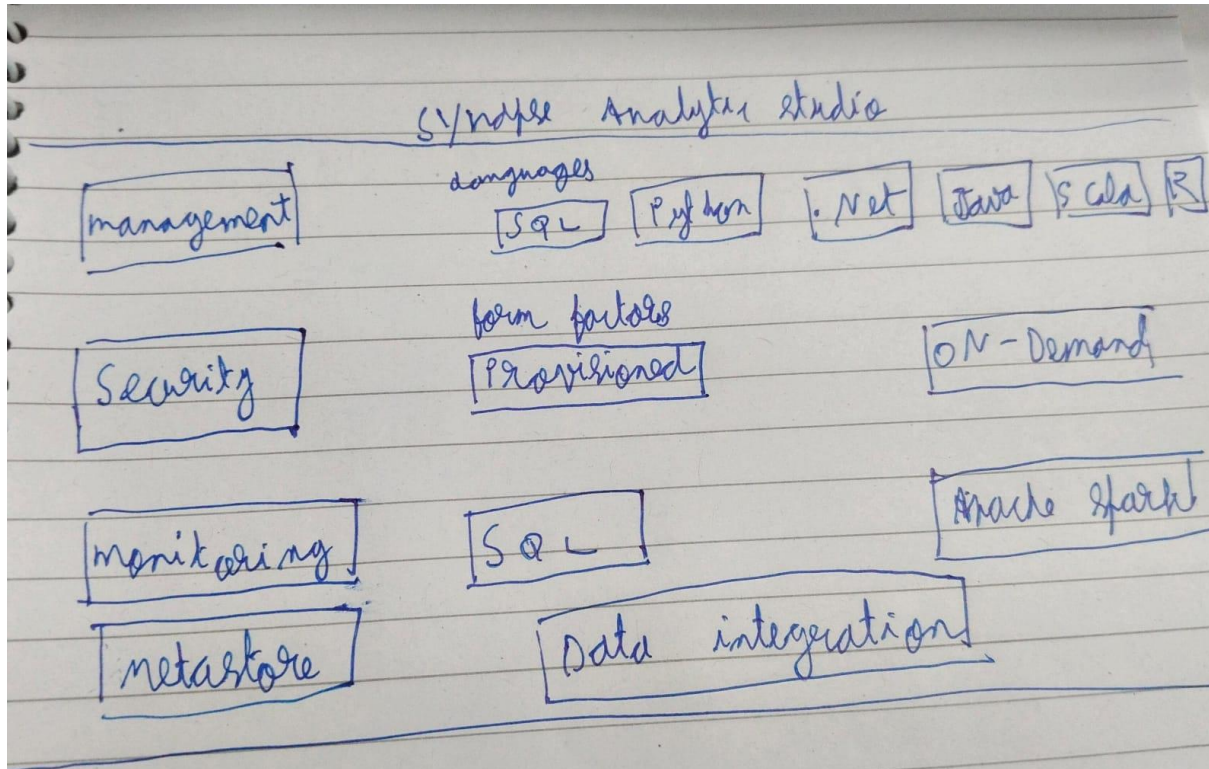 Synapse Analytics studio
Languages
management SQL Python .Net Java Scala R
form factors
Security Provisioned ON-Demand
monitoring SQL Apache Spark
metastore Data integration